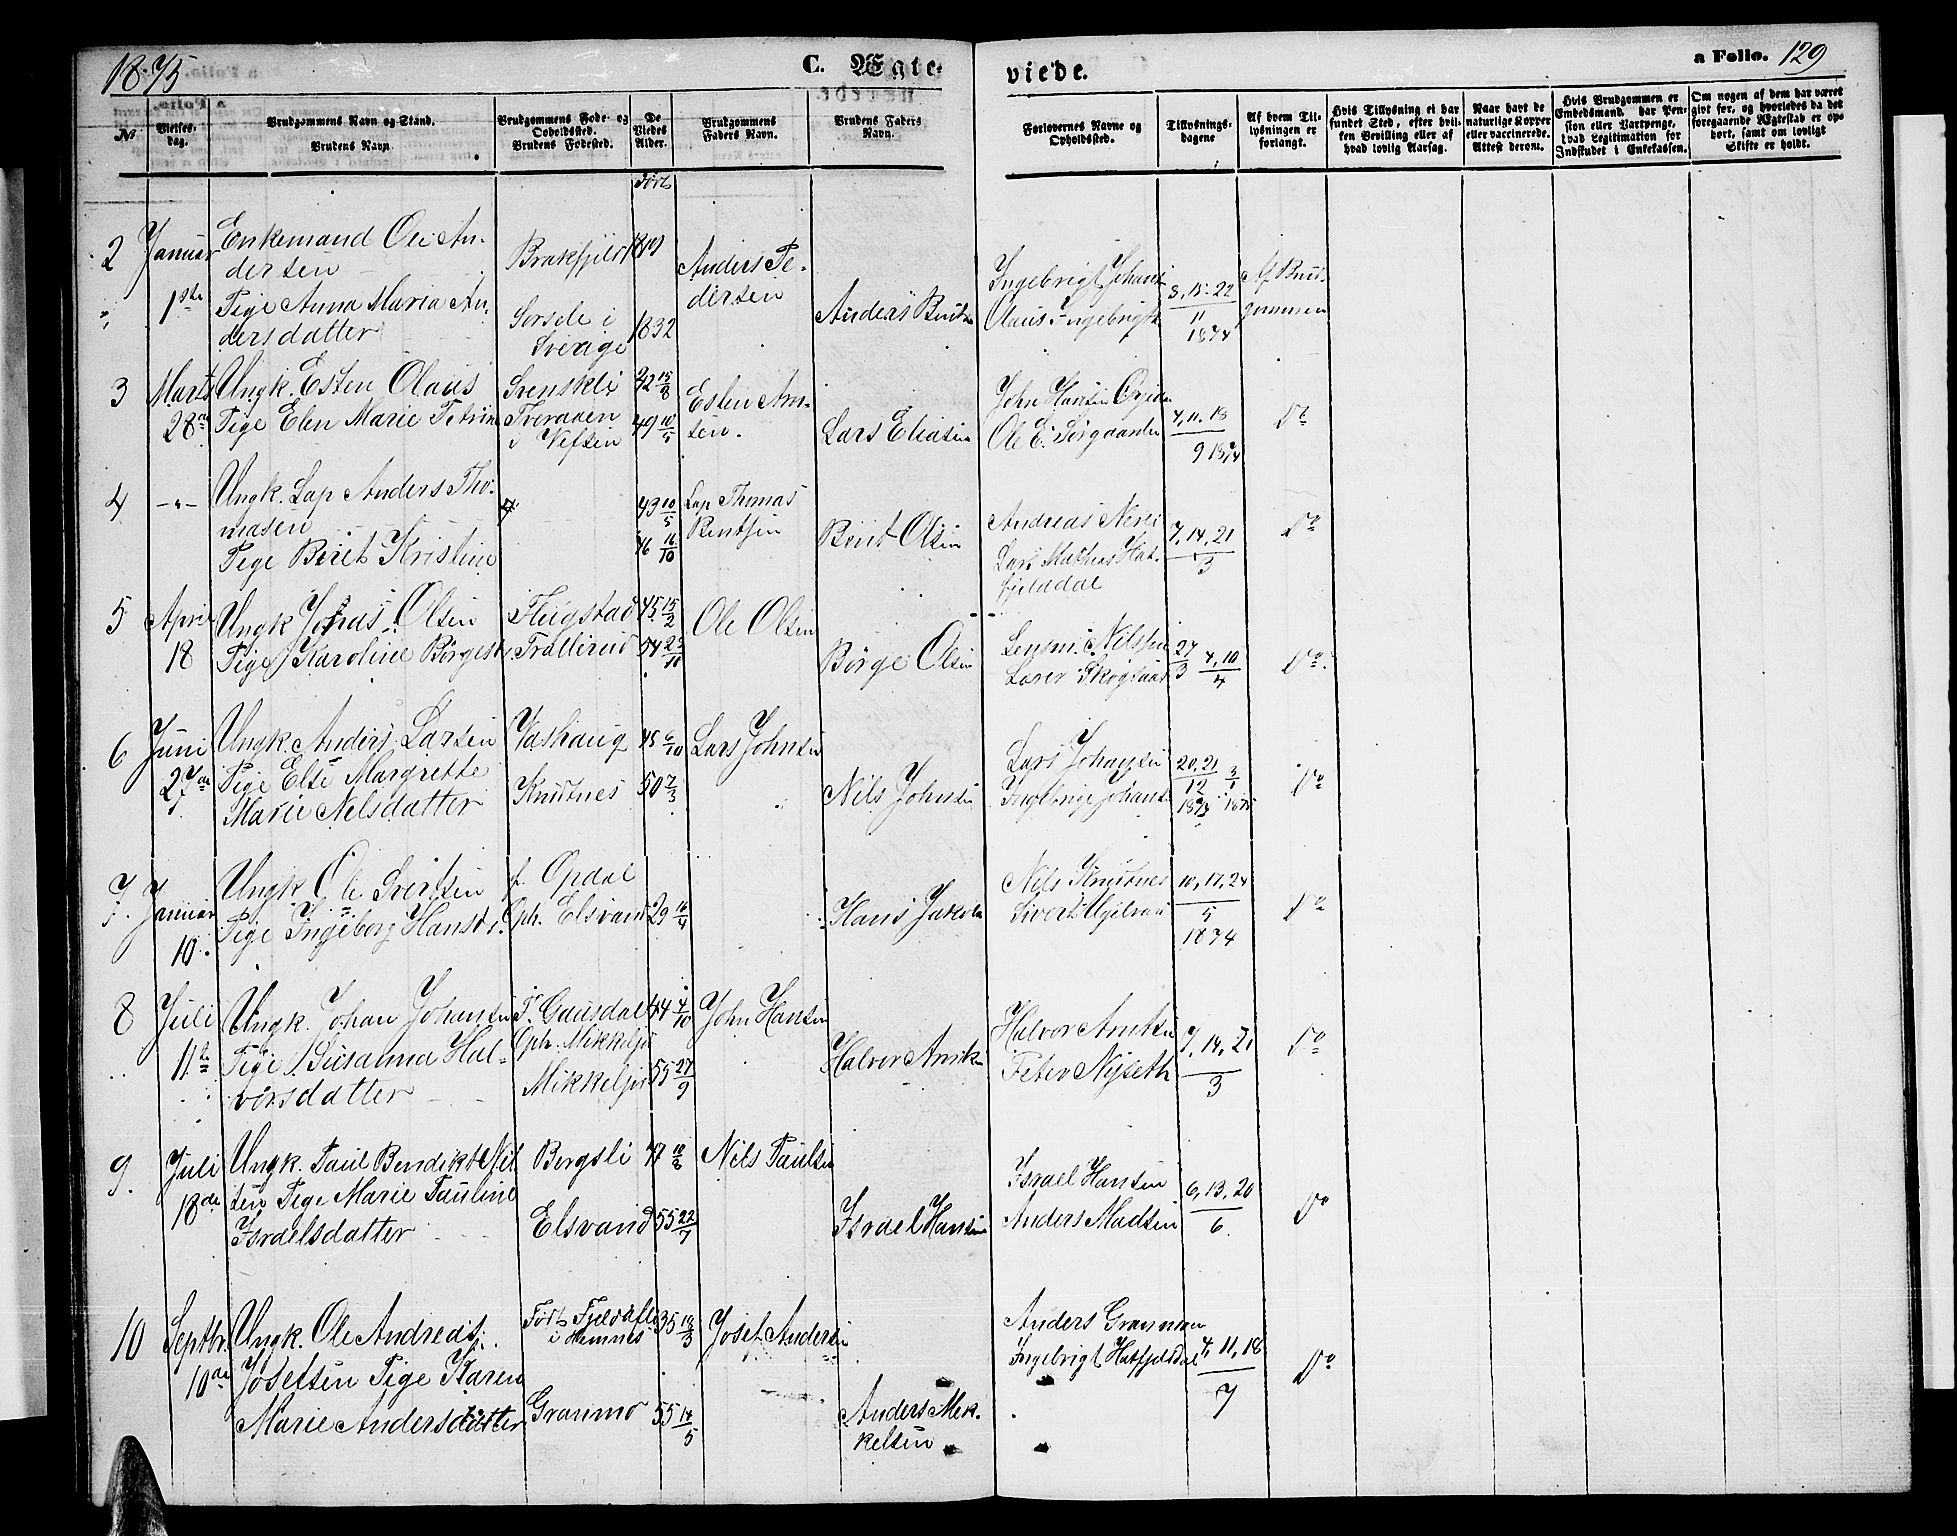 1875
C. Ægte-
viede.
a Folio. 129
No
Vielses-
dag.
Brudgommens Navn og Stand.
Brudens Navn.
Brudgommens Føde- og
Opholdssted.
Brudens Fødested.
De
Viedes
Alder.
Brudgommens
Faders Navn.
Brudens Faders
Navn.
Forlovernes Navne og
Opholdssted.
Tillysnings-
dagene
Af hvem Til-
lysningen er
forlangt.
Hvis Tillysning ei har
fundet Sted, efter hvil-
ken Bevilling eller af
hvad lovlig Aarsag.
Naar havt de
naturlige Kopper
eller vaccinerede.
Attest derom.
Hvis Brudgommen er
Embedsmand, har Pen-
sion eller Vartpenge,
hvad Legitimation for
Indskudet i Enkekassen.
Om nogen af dem har været
gift før, og hvorledes da det
foregaaende Ægteskab er op-
hørt, samt om lovligt
Skifte er holdt.
født
2 Januar
1ste
Enkemand Ole An-
dersen
Pige Anna Maria An-
dersdatter
Sorsele i
Sverige
1832
Anders Pe-
dersen
Ingebrigt Johans
Olaus Ingebrigts
8, 15, 22
11
1874
Af Brud-
gommen
3 Marts
28de
Ungk. Esten Olaus
Pige Elen Marie Petrine
Svenskli
Tveraaen
i Vefsen
42 15/8
49 10/5
Esten Am-
sen.
Lars Eliasen
John Hansen
Ole E.
4, 11, 18
9 1874
Do
4 -"-
Ungk. Lap Anders Tho-
masen
Pige Beret Kristine
43 10/5
46 16/10
Lap Thomas
Bentsen
Bent Olsen
Andreas
Lars Mathias Hat-
fjelddal
7, 14, 21
3
Do
5 April
18
Ungk Johas Olsen
Pige Karoline Børgesd.
45 15/2
54 23/10
Ole Olsen
Børge Olsen
Lensm. Nilssen
27/3 4, 10/4
Do
6 Juni
27de
Ungk. Anders Larsen
Pige Else Margrethe
Marie Nelsdatter
Knutnes
45 6/10
50 7/3
Lars Johnsen
Nils Johnsen
Lars Johansen
Ingebrigt Johans
20, 21
12
3/1 1875
Do
7. Januar
10.
Ungk. Ole Sivertsen
Pige Ingeborg Hansd.
f. Opdal
Oph. Elsvand
29 16/4
Hans Jakobs
Nils Knutnes
Sivert
10, 17, 24
5
1874
Do
8 Juli
11te
Ungk. Johan Johansen
Pige Susanna Hal-
vorsdatter
F. Gausdal
Oph. Mikkeljor
Mikkeljor
44 4/10
55 27/9
John Hansen
Halvor Amts
Halvor Amtsen
Peter Nyseth
7, 14, 21
3
Do
9. Juli
18de
Ungk. Paul Bendikt Nil
sen Pige Marie Pauline
Israelsdatter
Bergsli
Elsvand
47 10/8
55 22/7
Nils Paulsen
Israel Hansen
Israel Hansen
Anders Madsen
6, 13, 20
6
Do
10 Septbr.
10de
Ungk. Ole Andreas
Josefsen Pige Karen
Marie Andersdatter
Født
i Hemnes
Granmo
35 19/3
55 14/5
Josef Andersen
Anders Mik-
kelsen
Anders Granmoen
Ingebrigt Hatfjelddal
4, 11, 18
7
Do